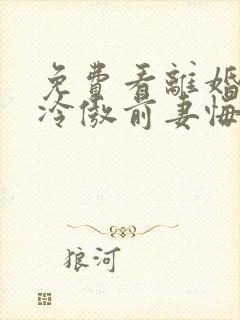 免費看離婚
冷傲前妻悔
狼河